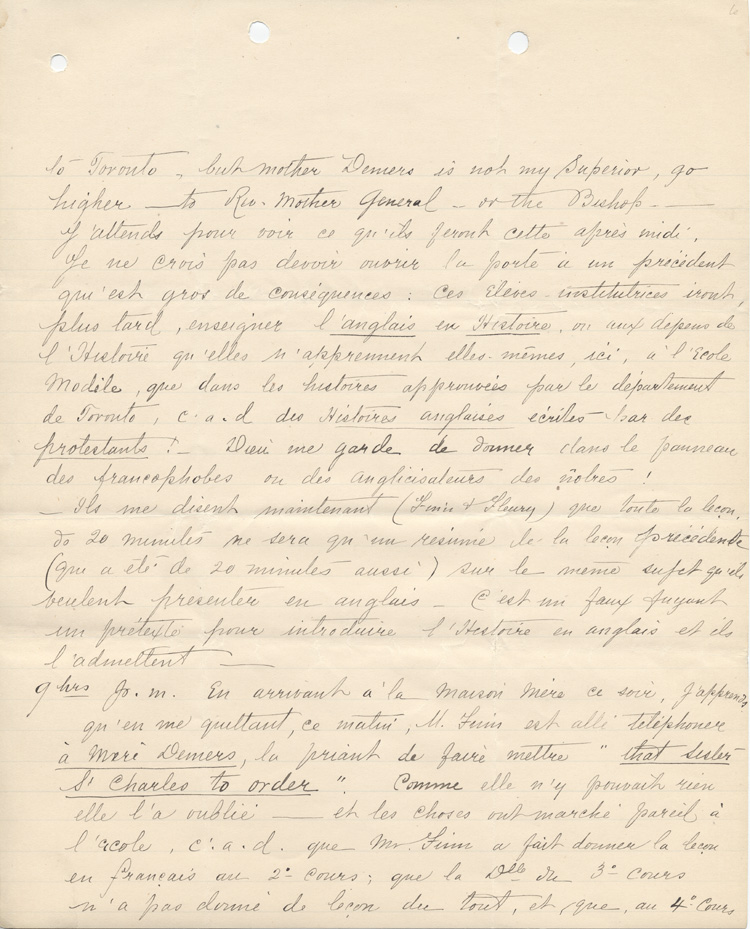 to Toronto - but Mother Demers is not my Superior, go
higher — to Rev. Mother General - or the Bishop. —
J'attends pour voir ce qu'ils feront cette après midi.
Je ne crois pas devoir ouvrir la porte à un précédent
qu'est gros de conséquences : ces Elèves-institutrices iront,
plus tard, enseigner l'anglais en Histoire, ou aux dépens de
l'Histoire qu'elles n'apprennent elles-mêmes, ici, à l'Ecole
Modèle, que dans les histoires approuvées par le département
de Toronto, c.a.d des Histoires anglaises écrites par des
protestants ! - Dieu me garde de donner dans le panneau
des francophobes ou des anglicisateurs des nôtres !
- Ils me disent maintenant (Finn & Fleury) que toute la leçon,
de 20 minutes ne sera qu'un résumé de la leçon précédente
(que a été de 20 minutes aussi) sur le même sujet qu'ils
veulent présenter en anglais - C'est un faux fuyant
un prétexte pour introduire l'Histoire en anglais et ils
l'admettent —
9 hrs p.m. En arrivant à la Maison Mère ce soir, j'apprends
qu'en me quittant, ce matin, M. Finn est allé téléphoner
à Mère Demers, la priant de faire mettre " that Sister
St Charles to order ". Comme elle n'y pouvait rien
elle l'a oublié — et les choses ont marché pareil à
l'école, c.a.d. que Mr. Finn a fait donner la leçon
en français au 2e cours ; que la Dlle du 3e cours
n'a pas donné de leçon du tout, et que, au 4e Cours